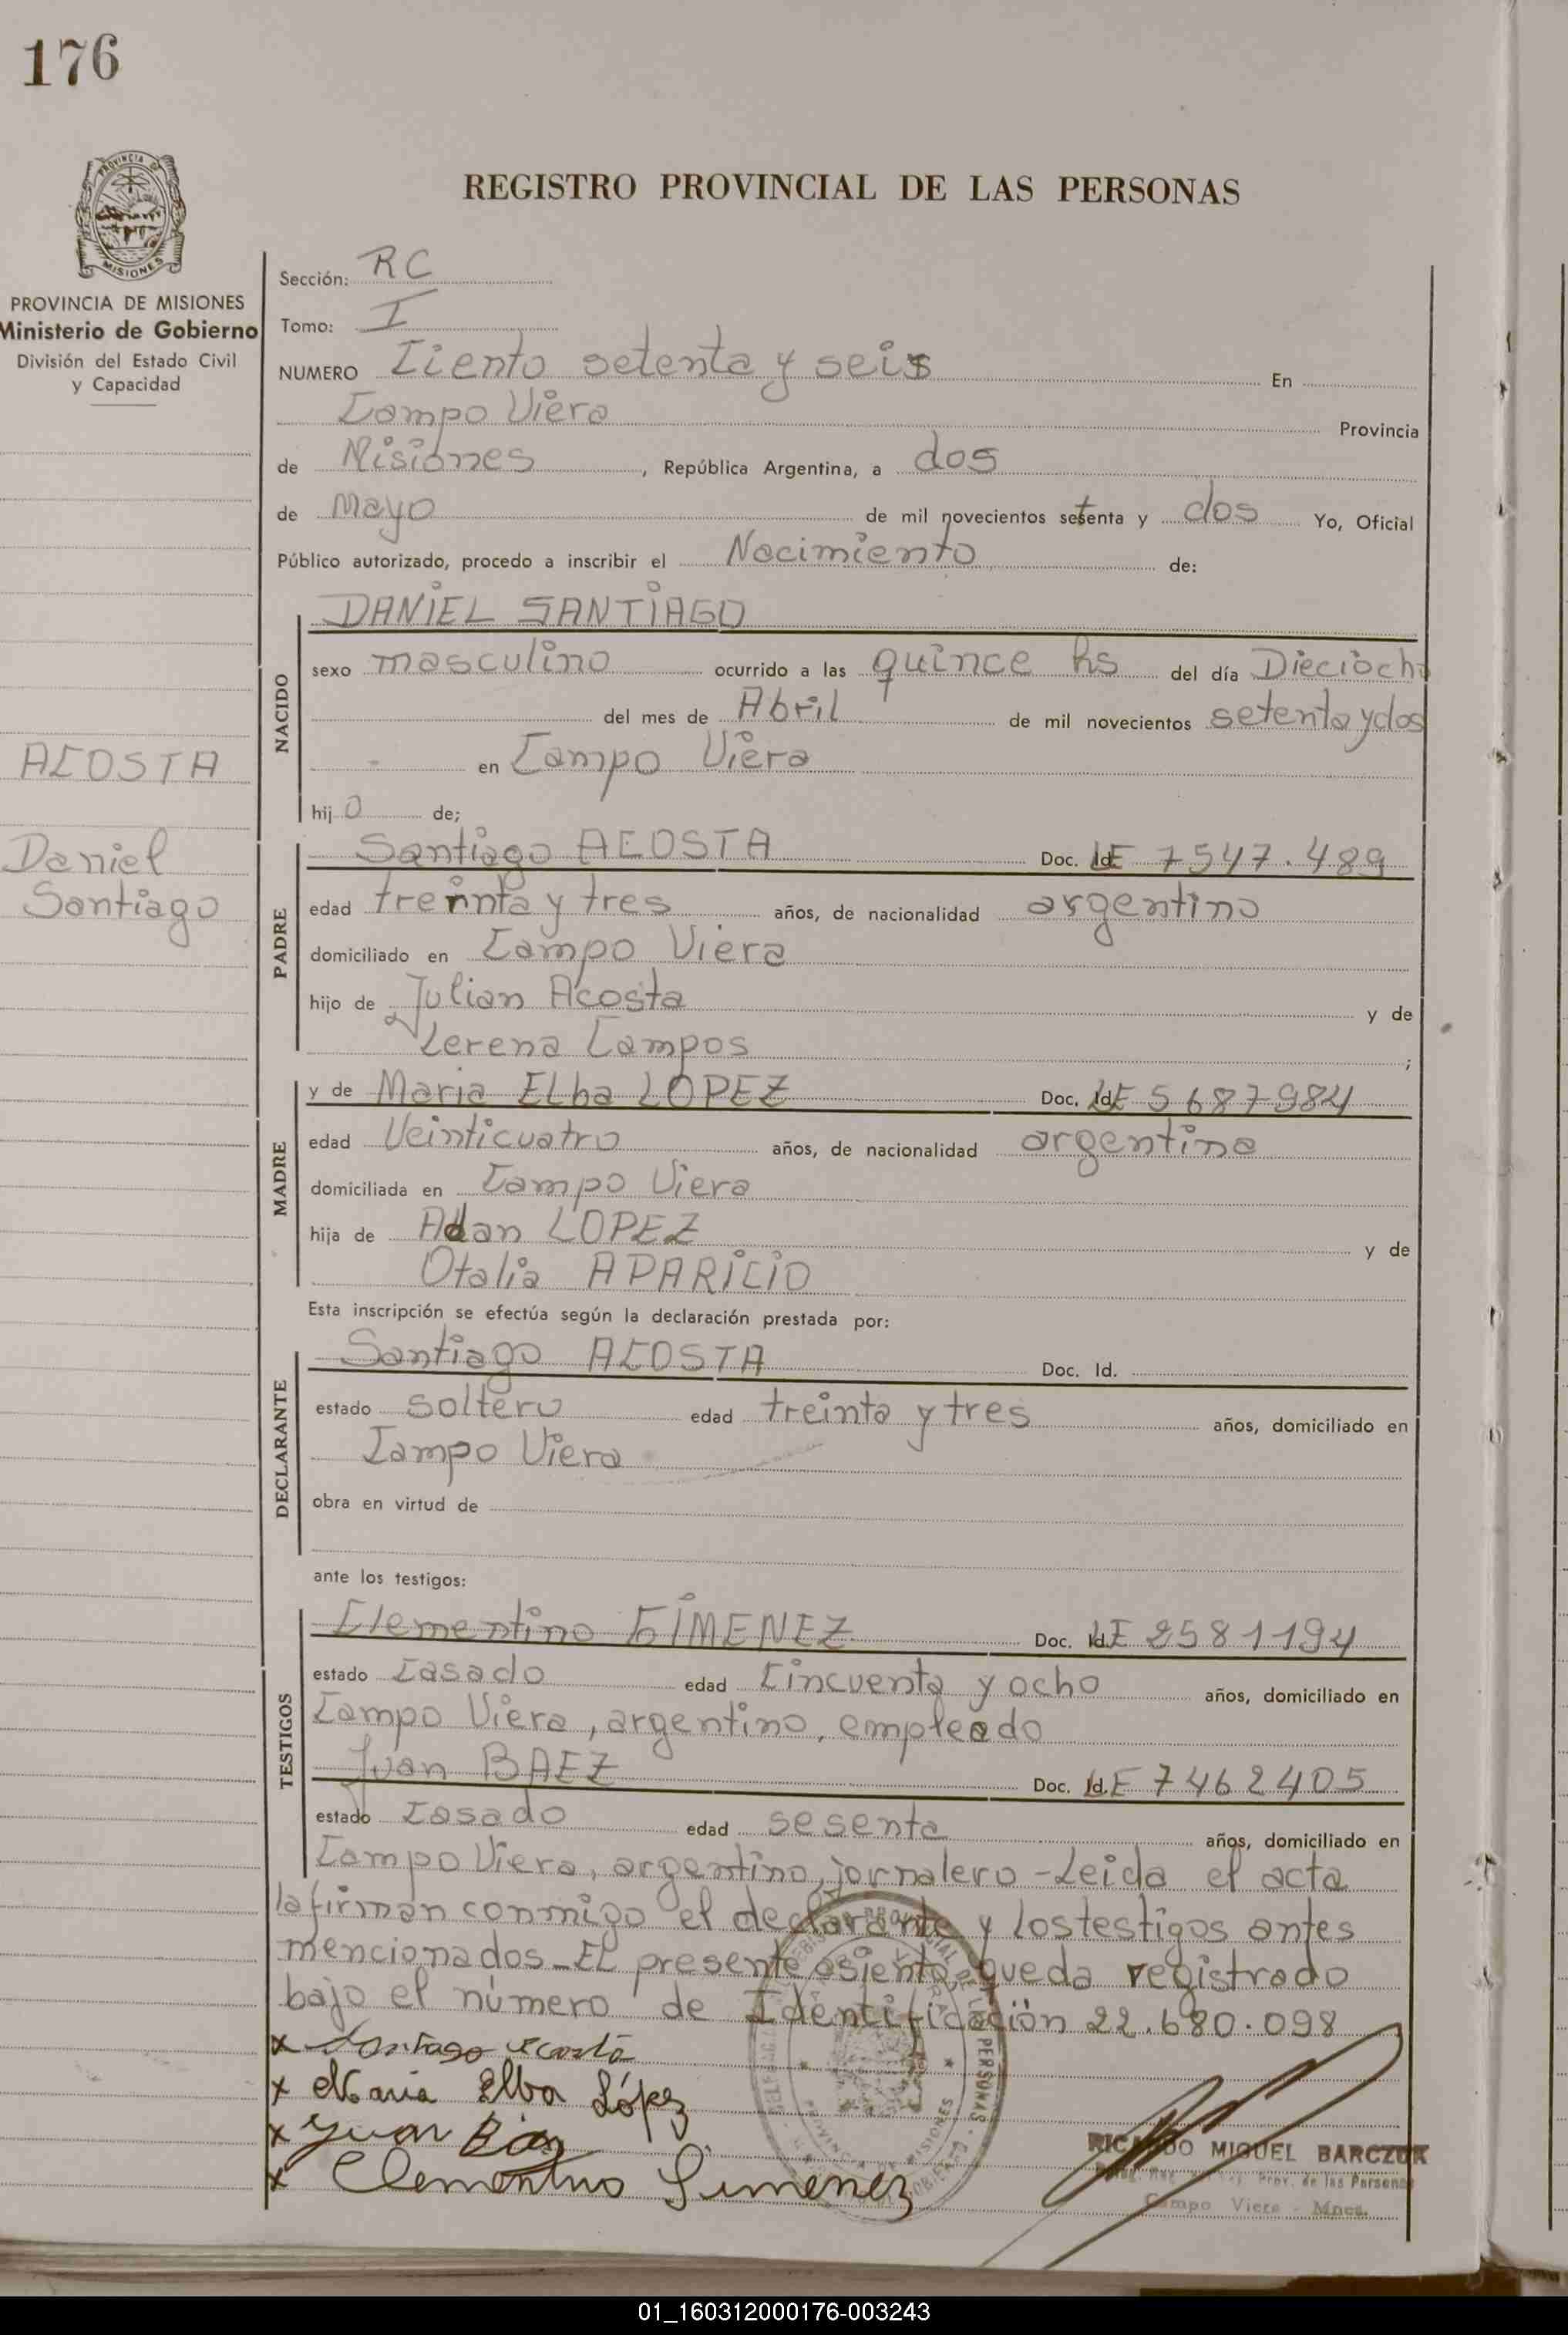 176
PROVINCIA DE
MISIONES
PROVINCIA DE MISIONES
Ministerio de Gobierno
División del Estado Civil
y Capacidad
ACOSTA
Daniel
Santiago
REGISTRO PROVINCIAL DE LAS PERSONAS
Sección: RC
Tomo: I
NUMERO Ciento setenta y seis En
Campo Viera Provincia
de Misiones, República Argentina, a dos
de Mayo de mil novecientos setenta y dos Yo, Oficial
Público autorizado, procedo a inscribir el Nacimiento de:
NACIDO
DANIEL SANTIAGO
sexo masculino ocurrido a las quince hs del día Dieciocho
del mes de Abril de mil novecientos setenta y dos
en Campo Viera
hijo de;
PADRE
Santiago ACOSTA Doc. Id. LE 7547.489
edad treinta y tres años, de nacionalidad argentino
domiciliado en Campo Viera
hijo de Julian Acosta y de
Lerena Campos ;
MADRE
y de Maria Elba LOPEZ Doc. Id. LE 5687984
edad Veinticuatro años, de nacionalidad argentina
domiciliada en Campo Viera
hija de Adan LOPEZ y de
Otalia APARICIO
Esta inscripción se efectúa según la declaración prestada por:
DECLARANTE
Santiago ACOSTA Doc. Id.
estado soltero edad treinta y tres años, domiciliado en
Campo Viera
obra en virtud de
ante los testigos:
TESTIGOS
Clementino GIMENEZ Doc. Id. LE 2581194
estado Casado edad Cincuenta y ocho años, domiciliado en
Campo Viera, argentino, empleado
Juan BAEZ Doc. Id. LE 7462405
estado Casado edad sesenta años, domiciliado en
Campo Viera, argentino, jornalero - Leida el acta
la firman conmigo el declarante y los testigos antes
mencionados - El presente asiento, queda registrado
bajo el número de Identificación 22.680.098
x Santiago Acosta
x Maria Elba López
x Juan Baez
x Clementino Gimenez
RICARDO MIGUEL BARCZUK
Prov. de las Personas
Campo Viera - Mnes.
01_160312000176-003243